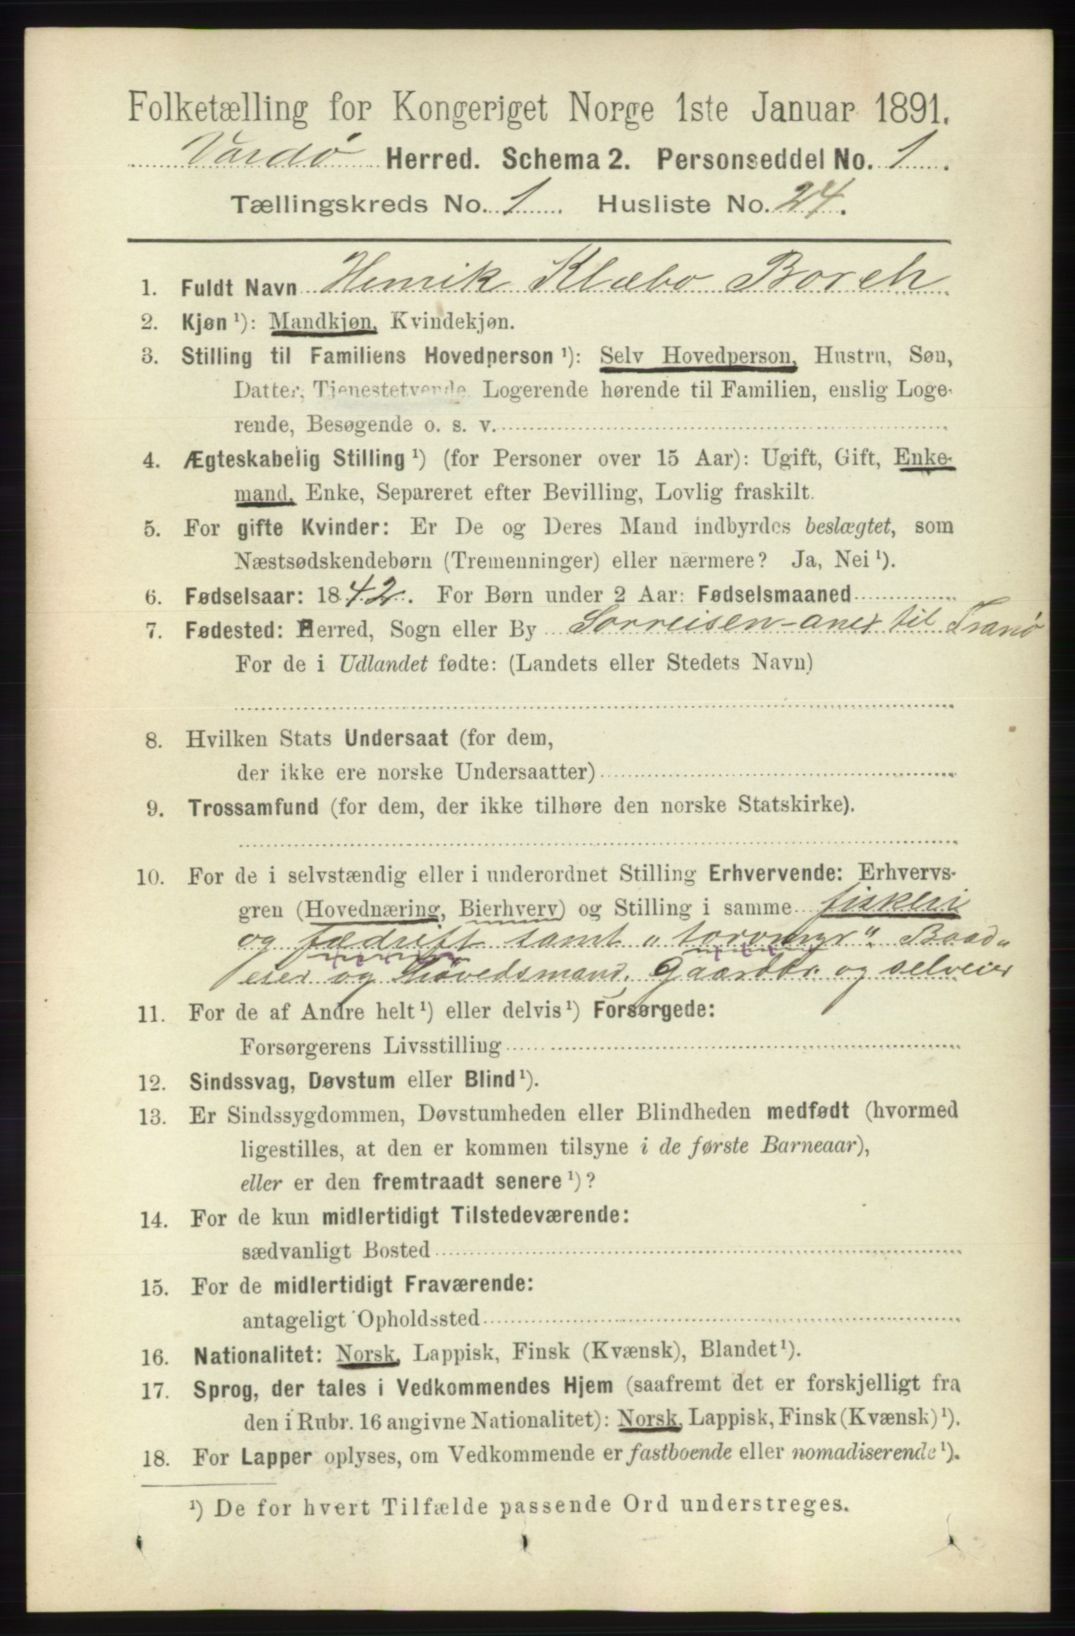 Folketælling for Kongeriget Norge 1ste Januar 1891.
Vardø Herred. Schema 2. Personseddel No. 1.
Tællingskreds No. 1. Husliste No. 24.
1. Fuldt Navn Henrik Klæbo Borch
2. Kjøn ¹): Mandkjøn, Kvindekjøn.
3. Stilling til Familiens Hovedperson ¹): Selv Hovedperson, Hustru, Søn,
Datter, Tjenestetyende, Logerende hørende til Familien, enslig Loge-
rende, Besøgende o. s. v.
4. Ægteskabelig Stilling ¹) (for Personer over 15 Aar): Ugift, Gift, Enke-
mand, Enke, Separeret efter Bevilling, Lovlig fraskilt.
5. For gifte Kvinder: Er De og Deres Mand indbyrdes beslægtet, som
Næstsødskendebørn (Tremenninger) eller nærmere? Ja, Nei ¹).
6. Fødselsaar: 1842. For Børn under 2 Aar: Fødselsmaaned
7. Fødested: Herred, Sogn eller By Sorreisen-anex til Tranø
For de i Udlandet fødte: (Landets eller Stedets Navn)
8. Hvilken Stats Undersaat (for dem,
der ikke ere norske Undersaatter)
9. Trossamfund (for dem, der ikke tilhøre den norske Statskirke).
10. For de i selvstændig eller i underordnet Stilling Erhvervende: Erhvervs-
gren (Hovednæring, Bierhverv) og Stilling i samme fiskeri
og fædrift samt "torvmyr". Baad„
eier og Høvedsmand. Gaardbr. og selveier
11. For de af Andre helt ¹) eller delvis ¹) Forsørgede:
Forsørgerens Livsstilling
12. Sindssvag, Døvstum eller Blind ¹).
13. Er Sindssygdommen, Døvstumheden eller Blindheden medfødt (hvormed
ligestilles, at den er kommen tilsyne i de første Barneaar),
eller er den fremtraadt senere ¹)?
14. For de kun midlertidigt Tilstedeværende:
sædvanligt Bosted
15. For de midlertidigt Fraværende:
antageligt Opholdssted
16. Nationalitet: Norsk, Lappisk, Finsk (Kvænsk), Blandet ¹).
17. Sprog, der tales i Vedkommendes Hjem (saafremt det er forskjelligt fra
den i Rubr. 16 angivne Nationalitet): Norsk, Lappisk, Finsk (Kvænsk) ¹).
18. For Lapper oplyses, om Vedkommende er fastboende eller nomadiserende ¹).
¹) De for hvert Tilfælde passende Ord understreges.